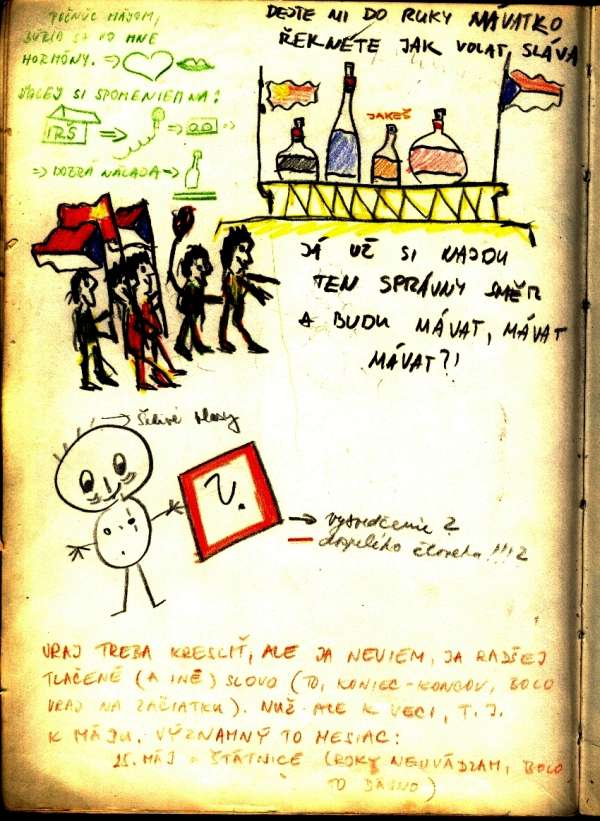 POČNÚC MÁJOM,
BÚRIA SA VO MNE
HORMÓNY. ⇒
SI SPOMENIEM NA:
IRŠ ⇒ ⇒
⇒ DOBRÁ NÁLADA →
DEJTE MI DO RUKY MÁVATKO
ŘEKNĚTE JAK VOLAT, SLÁVA
JAKEŠ
JÁ UŽ SI NAJDU
TEN SPRÁVNY SMĚR
A BUDU MÁVAT, MÁVAT
MÁVAT?!
→ Šedivé vlasy
V.
→ vysvedčenie z
dospelého človeka!!!
VRAJ TREBA KRESLIŤ, ALE JA NEVIEM, JA RADŠEJ
TLAČENÉ (A INÉ) SLOVO (TO, KONIEC-KONCOV, BOLO
VRAJ NA ZAČIATKU). NUŽ ALE K VECI, T. J.
K MÁJU. VÝZNAMNÝ TO MESIAC:
25. MÁJ - ŠTÁTNICE (ROKY NEUVÁDZAM, BOLO
TO DÁVNO)